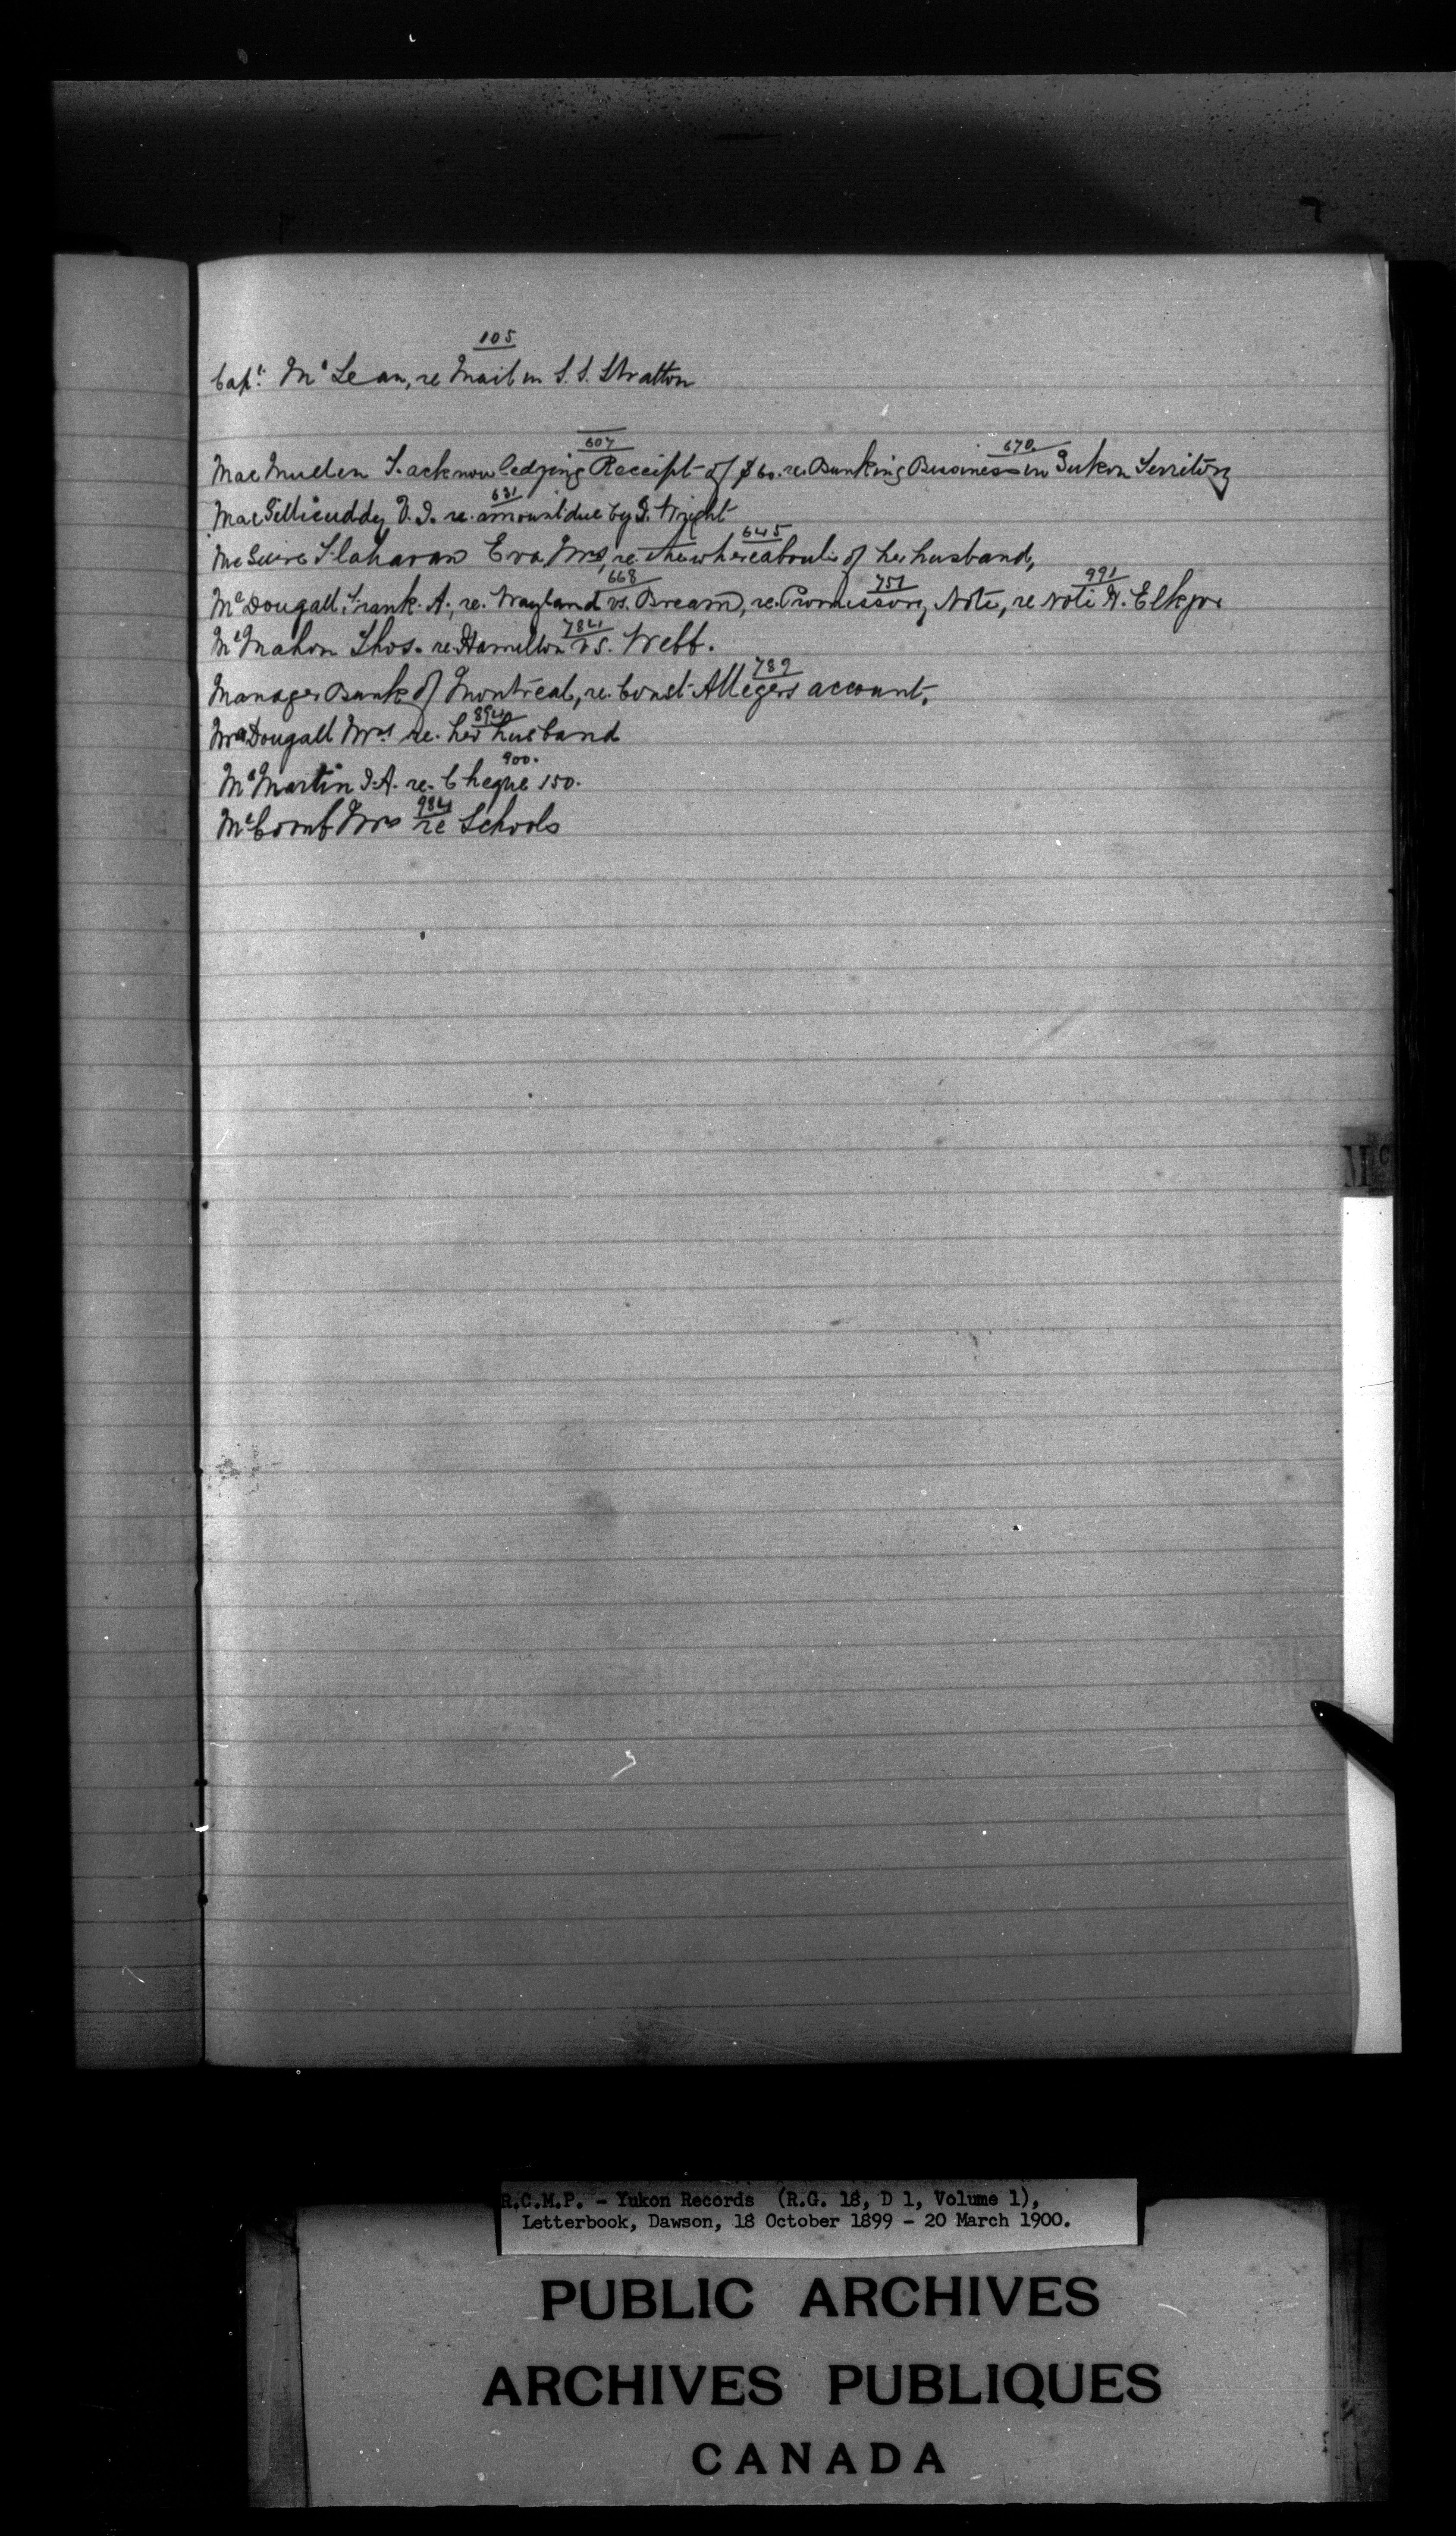 105
Capt. Mc Lean, re Mail in S.S. Stratton
607 670
Mac Mullen T. acknowledging Receipt of $60. re. Banking Business in Yukon Territory
631
MacGillicuddy V.I. re. amount due by J. Wright
645
McGuire Flaharan Eva Mrs, re. the whereabouts of her husband,
668 757 991
McDougall, Frank. A., re. Wayland vs. Bream, re. Promissory Note, re Note N. Elkjor
784
McMahon Thos. re. Hamilton vs. Webb.
789
Manager Bank of Montreal, re. Const Allegers account,
894
MacDougall Mrs re. her husband
900.
McMartin J.A. re. Cheque 150.
984
McComb Mrs re Schools
Mc
R.C.M.P. - Yukon Records (R.G. 18, D 1, Volume 1),
Letterbook, Dawson, 18 October 1899 - 20 March 1900.
PUBLIC ARCHIVES
ARCHIVES PUBLIQUES
CANADA